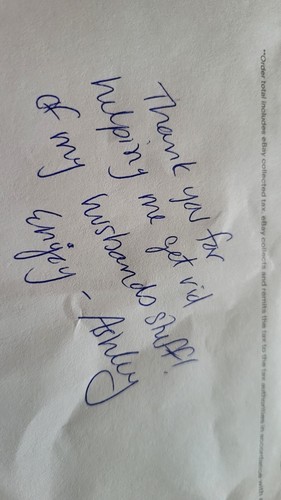 **Order total includes eBay collected tax. eBay collects and remits the tax to the tax authorities in accordance with
Thank you for
helping me get rid
of my husbands stuff!
Enjoy - Ashley